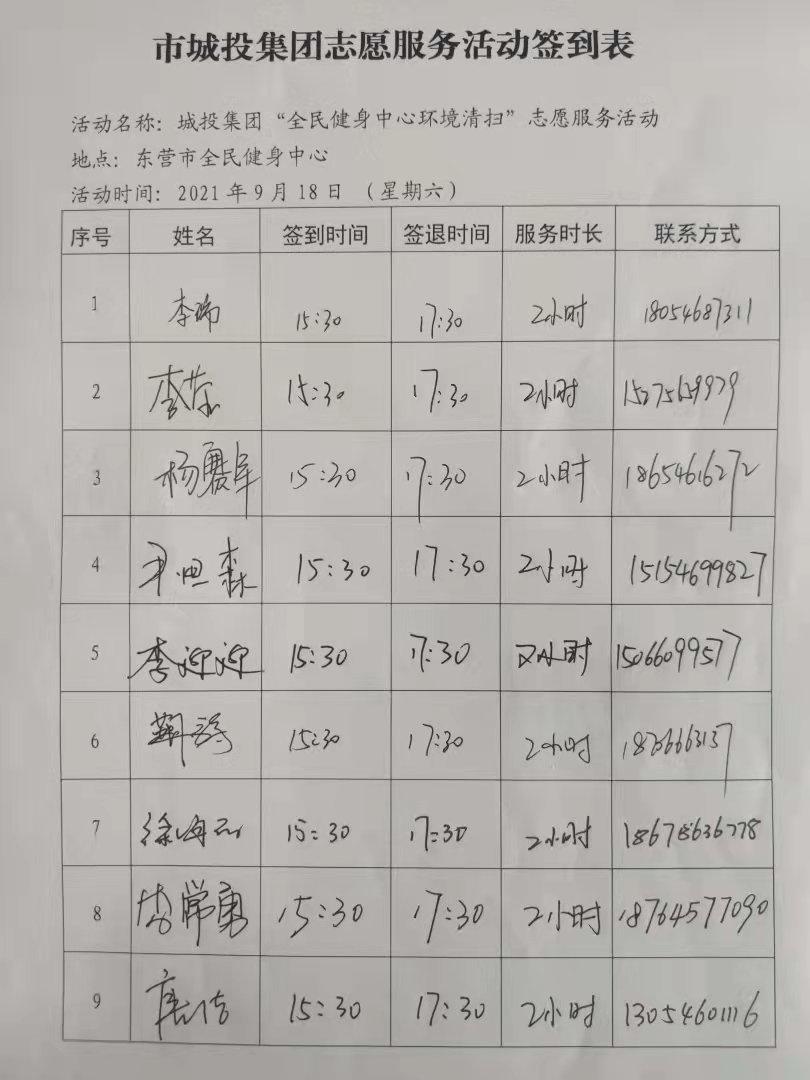 市城投集团志愿服务活动签到表
活动名称：城投集团“全民健身中心环境清扫”志愿服务活动
地点：东营市全民健身中心
活动时间：2021年9月18日（星期六）
序号 姓名 签到时间 签退时间 服务时长 联系方式
1 李瑞 15:30 17:30 2小时 18054687311
2 15:30 17:30 2小时
3 杨赛军 15:30 17:30 2小时 18654616272
4 15:30 17:30 2小时 15154699827
5 李迎迎 15:30 17:30 2小时 15066099577
6 15:30 17:30 2小时
7 徐海 15:30 17:30 2小时
8 李常勇 15:30 17:30 2小时 18764577090
9 15:30 17:30 2小时 13054601116